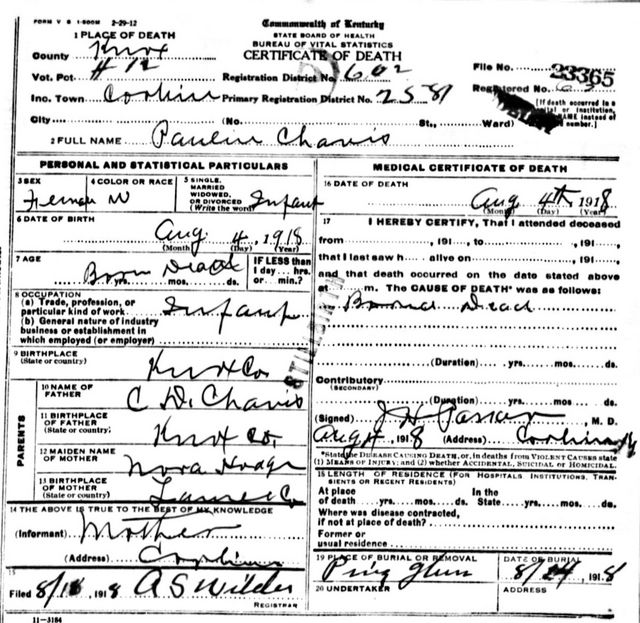 FORM V S 1-500M 2-29-12
Commonwealth of Kentucky
STATE BOARD OF HEALTH
BUREAU OF VITAL STATISTICS
CERTIFICATE OF DEATH
1 PLACE OF DEATH
County Knox
Vot. Pct #12 Registration District No. 602
File No. 23365
Inc. Town Corbin Primary Registration District No. 2581
Registered No.
City (No. St., Ward)
[If death occurred in a
or institution,
NAME instead of
number.]
2 FULL NAME Paulin Chavis
PERSONAL AND STATISTICAL PARTICULARS
3 SEX
4 COLOR OR RACE W
5 SINGLE, MARRIED WIDOWED, OR DIVORCED (Write the word) Infant
6 DATE OF BIRTH
Aug 4, 1918
(Month) (Day) (Year)
7 AGE
Born Dead
yrs. mos. ds.
IF LESS than
1 day... hrs.
or min.?
8 OCCUPATION
(a) Trade, profession, or
particular kind of work Infant
(b) General nature of industry
business or establishment in
which employed (or employer)
STILLBIRTH
9 BIRTHPLACE
(State or country) Knox Co
PARENTS
10 NAME OF
FATHER C D. Chavis
11 BIRTHPLACE
OF FATHER
(State or country) Knox Co,
12 MAIDEN NAME
OF MOTHER Nora
13 BIRTHPLACE
OF MOTHER
(State or country) Co
14 THE ABOVE IS TRUE TO THE BEST OF MY KNOWLEDGE
(Informant) Mother
(Address) Corbin
15
Filed 8/18, 1918 A S Wilder
REGISTRAR
11-3184
MEDICAL CERTIFICATE OF DEATH
16 DATE OF DEATH
Aug 4th 1918
(Month) (Day) (Year)
17 I HEREBY CERTIFY, That I attended deceased
from , 191 , to , 191 ,
that I last saw h alive on , 191 ,
and that death occurred on the date stated above
at m. The CAUSE OF DEATH* was as follows:
Dead
(Duration) yrs. mos. ds.
Contributory
(SECONDARY)
(Duration) yrs. mos. ds.
(Signed) J H , M. D.
Aug 4, 1918 (Address) Corbin Ky
*State the DISEASE CAUSING DEATH, or, in deaths from VIOLENT CAUSES state
(1) MEANS OF INJURY; and (2) whether ACCIDENTAL, SUICIDAL or HOMICIDAL.
18 LENGTH OF RESIDENCE (FOR HOSPITALS, INSTITUTIONS, TRAN-
SIENTS OR RECENT RESIDENTS)
At place In the
of death yrs. mos. ds. State yrs. mos. ds.
Where was disease contracted,
if not at place of death?
Former or
usual residence
19 PLACE OF BURIAL OR REMOVAL
DATE OF BURIAL
8/24, 1918
20 UNDERTAKER
ADDRESS